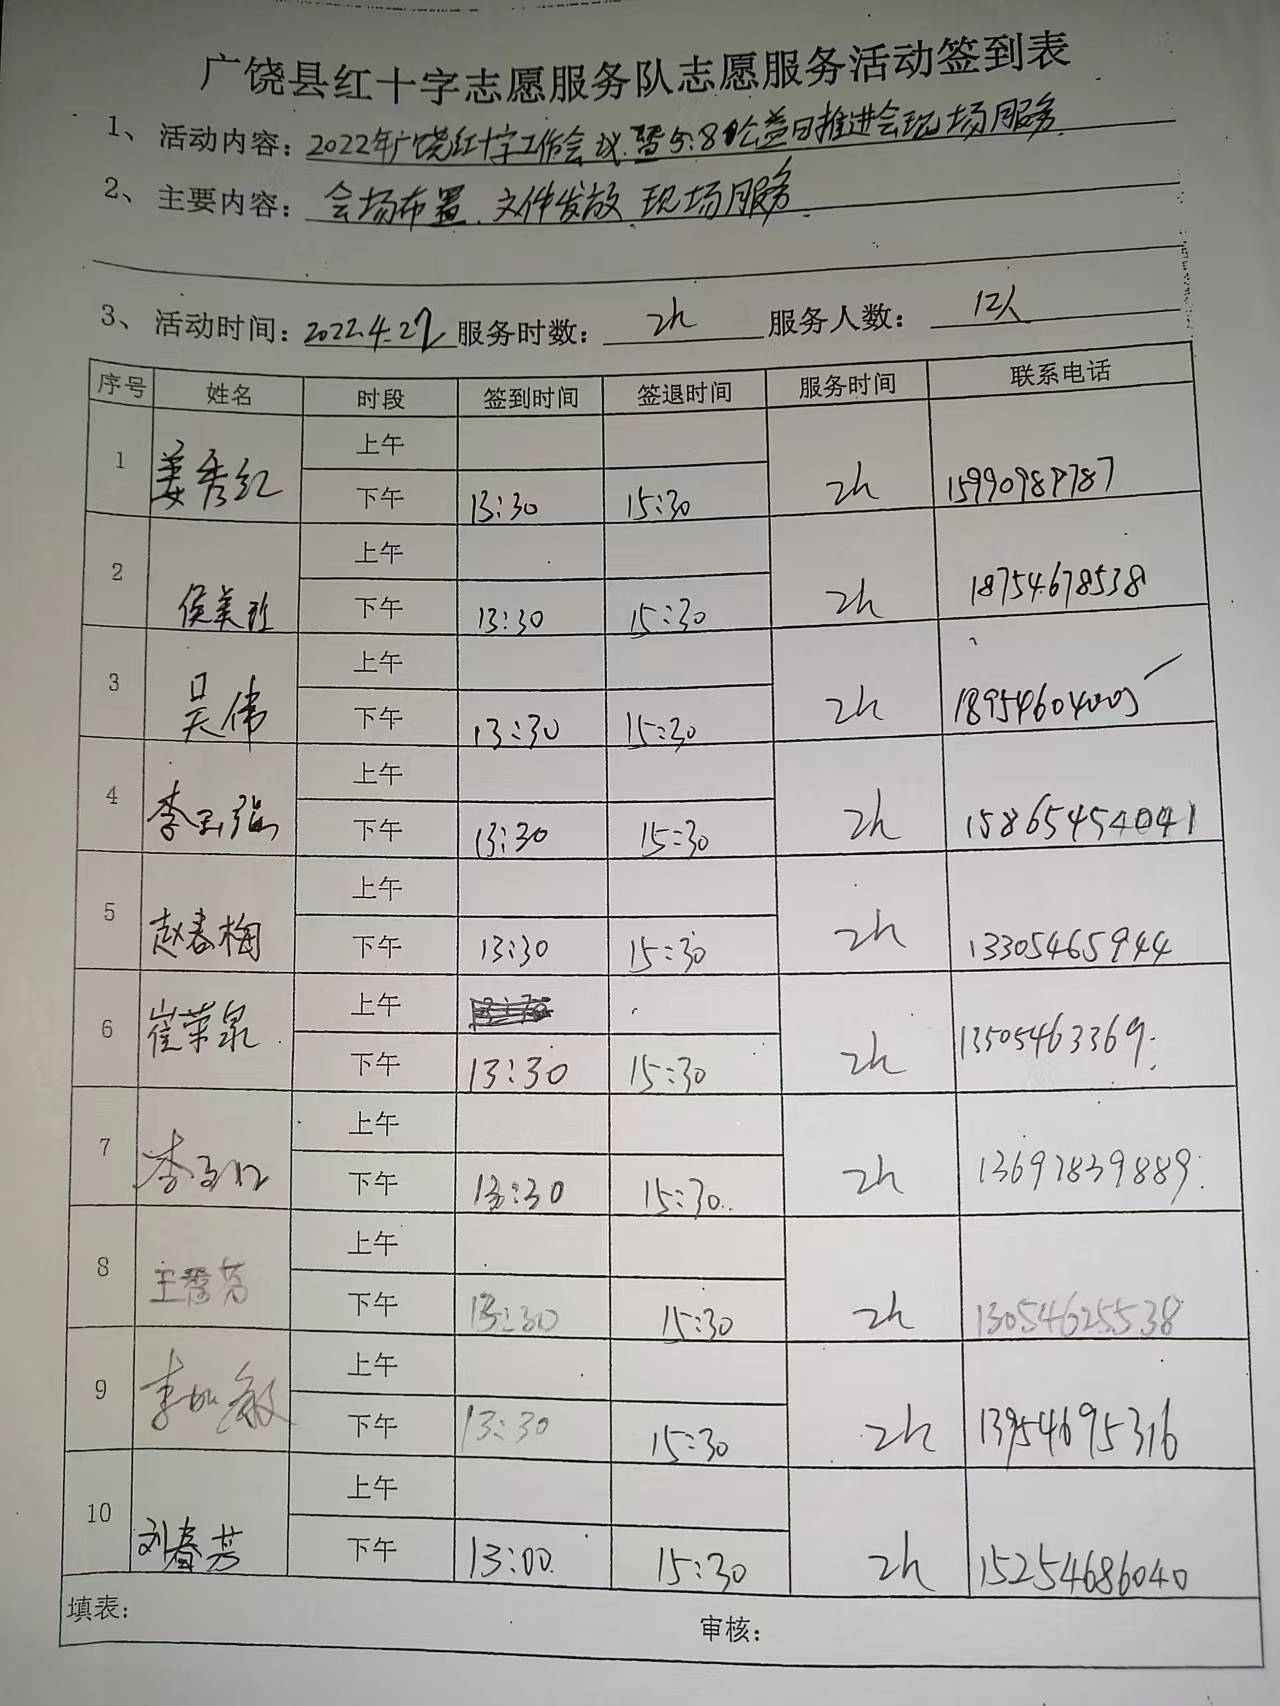 广饶县红十字志愿服务队志愿服务活动签到表
1、活动内容：2022年广饶红十字工作会议暨5.8公益日推进会现场服务
2、主要内容：会场布置、文件发放 现场服务
3、活动时间：2022.4.27 服务时数：2h 服务人数：12人
序号 姓名 时段 签到时间 签退时间 服务时间 联系电话
1 姜秀红 上午
下午 13:30 15:30 2h 15990989787
2 侯美 上午
下午 13:30 15:30 2h 18754678538
3 吴伟 上午
下午 13:30 15:30 2h
4 李 强 上午
下午 13:30 15:30 2h 15865454041
5 赵春梅 上午
下午 13:30 15:30 2h 13305465944
6 崔荣泉 上午
下午 13:30 15:30 2h 13505463369
7 李 上午
下午 13:30 15:30 2h 13697839889
8 王秀芳 上午
下午 13:30 15:30 2h 13054625538
9 李如敏 上午
下午 13:30 15:30 2h 13954695316
10 刘春芳 上午
下午 13:00 15:30 2h 15254686040
填表： 审核：